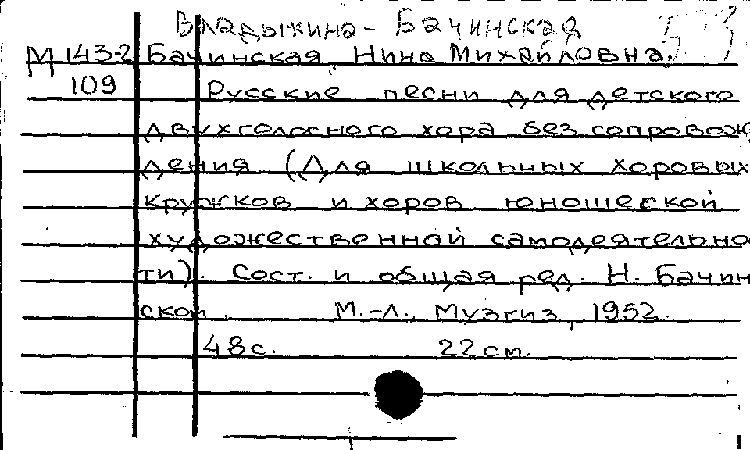 Владыкина-Бачинская
М 143-2 Бачинская, Нина Михайловна.
109 Русские песни для детского
двухголосного хора без сопровож
дения (Для школьных хоровых
кружков и хоров юношеской
художественной самодеятельно
ти). Сост. и общая ред. Н. Бачин
ской. М.-Л., Музгиз, 1952.
48 с. 22 см.